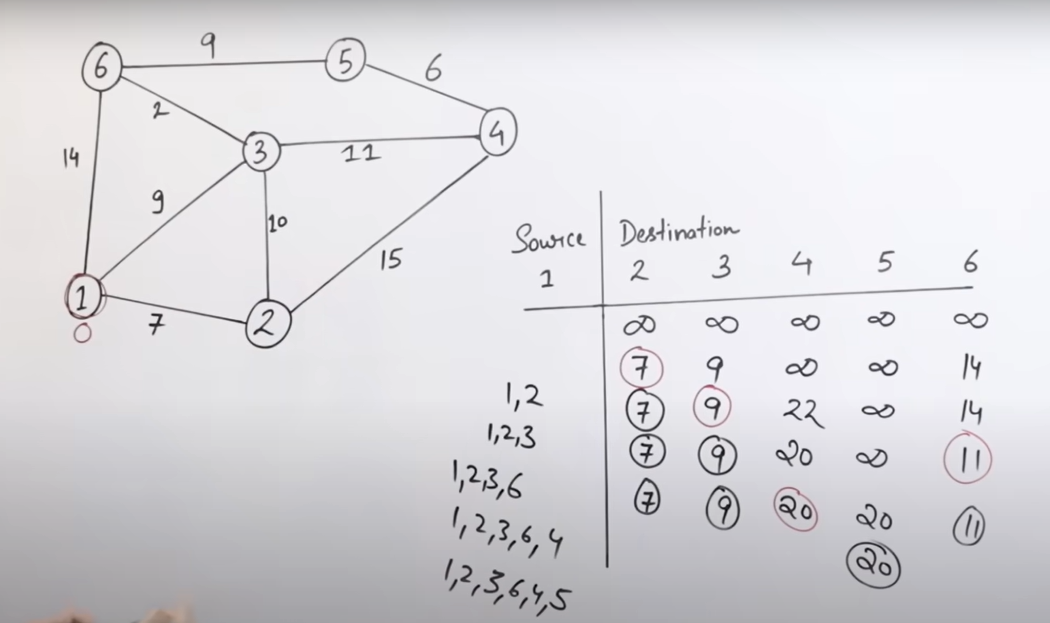 9
6
5
6
2
4
3
11
14
9
10
15
1
7
2
0
Source Destination
1 2 3 4 5 6
∞ ∞ ∞ ∞ ∞
7 9 ∞ ∞ 14
1,2 7 9 22 ∞ 14
1,2,3 7 9 20 ∞ 11
1,2,3,6 7 9 20 20 11
1,2,3,6,4 20
1,2,3,6,4,5